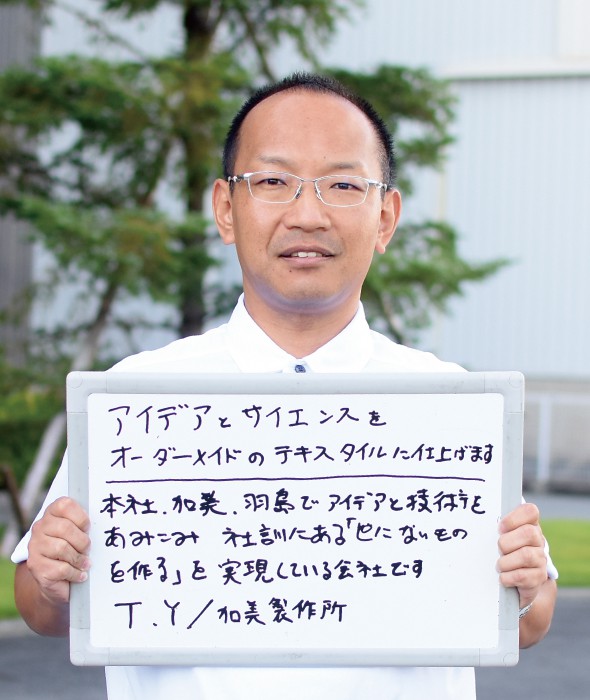 アイデアとサイエンスを
オーダーメイドのテキスタイルに仕上げます
本社、加美、羽島でアイデアと技術を
あみこみ 社訓にある「世にないもの
を作る」を実現している会社です
T.Y/加美製作所